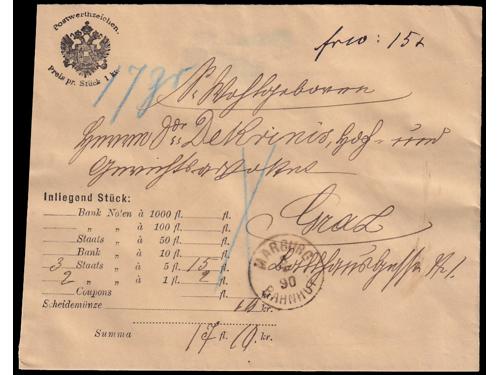 Postwerthzeichen.
Preis pr. Stück 1 kr.
frco: 15x
17 gr
Sr. Wohlgeboren
Herrn Ddr Dekrinis, Hof- und
Gerichtsadvokat
Graz
Rathhausgasse N. 1
MARBURG
90
BAHNHOF
Inliegend Stück:
Bank Noten à 1000 fl. fl.
„ „ à 100 fl. fl.
Staats „ à 50 fl. fl.
Bank „ à 10 fl. fl.
3 Staats „ à 5 fl. 15 fl.
2 „ „ à 1 fl. 2 fl.
Coupons fl.
Scheidemünze 10 kr.
Summa 17 fl. 10 kr.